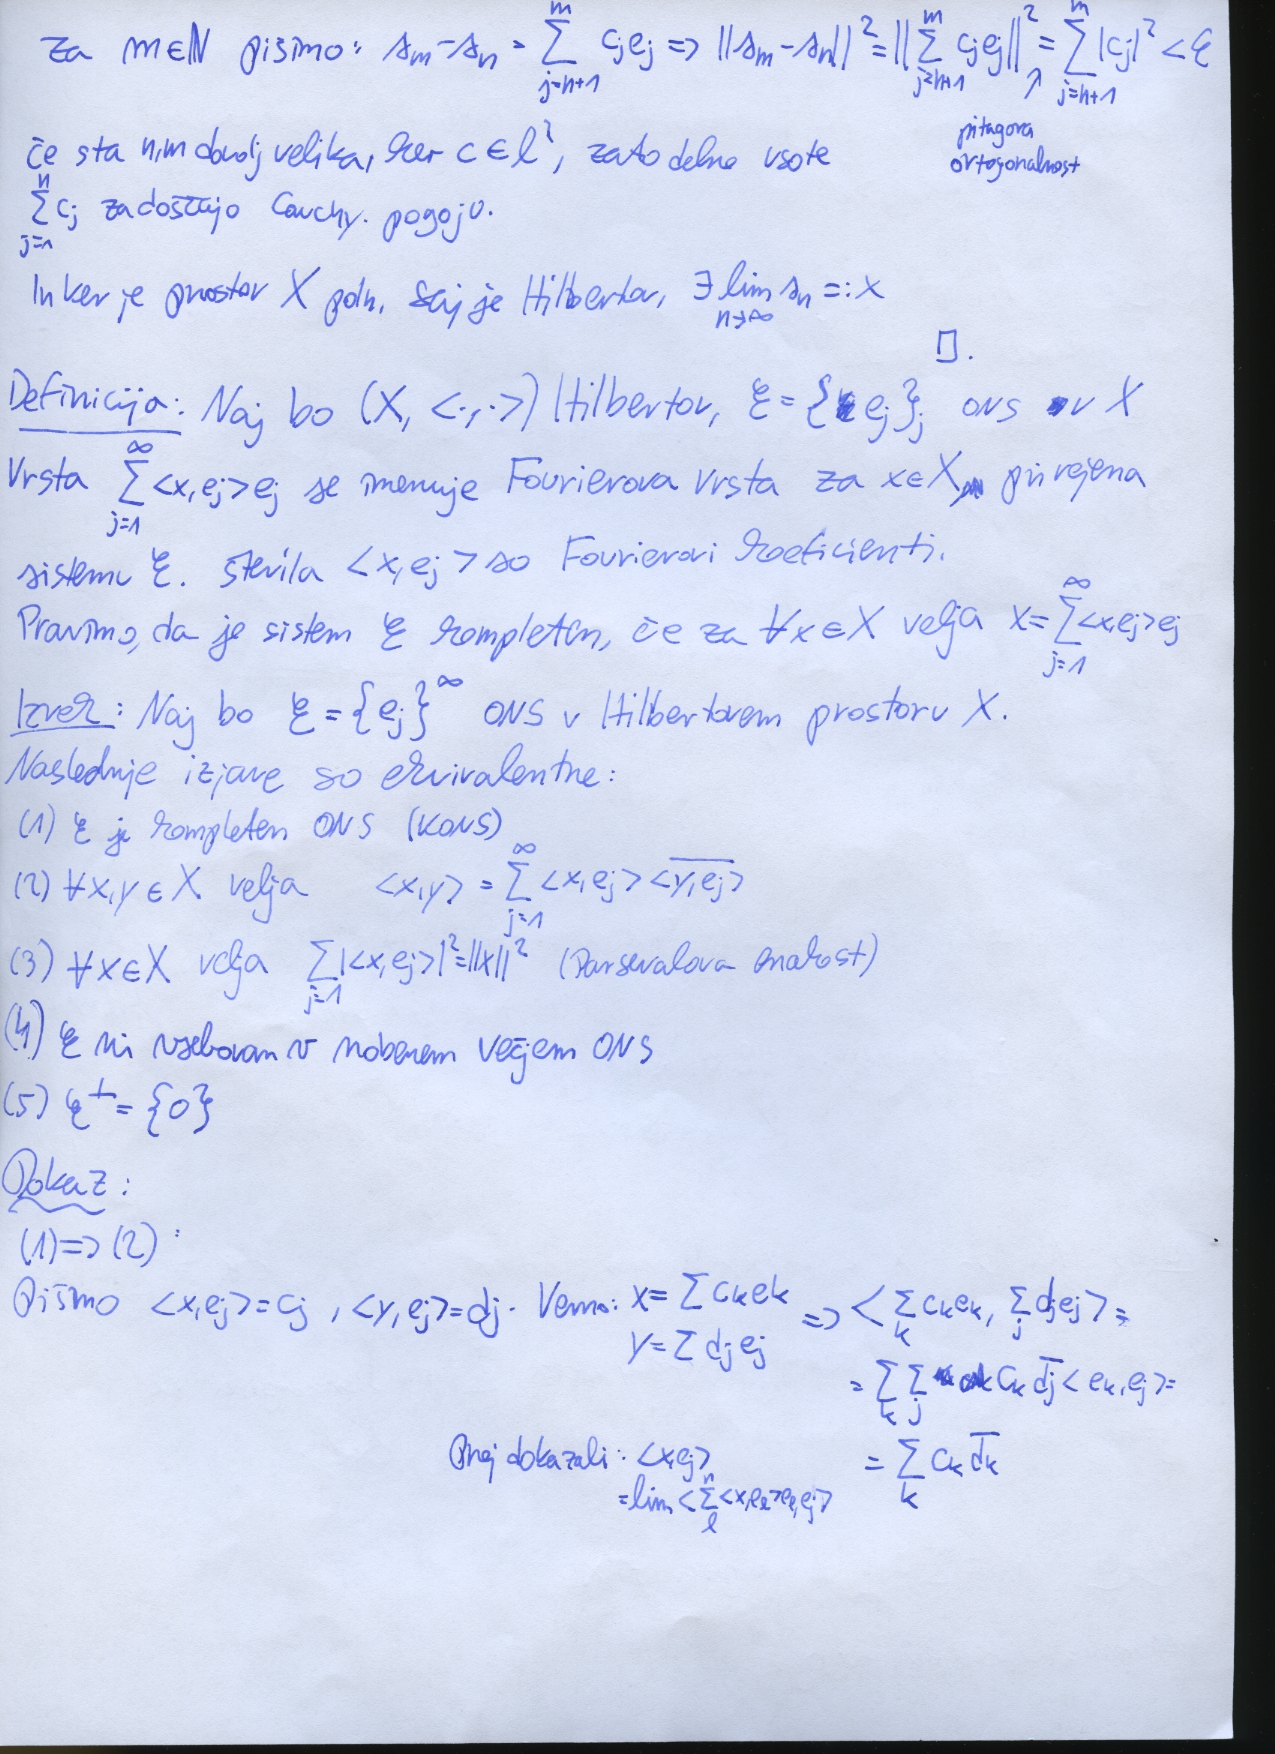 Za m∈ℕ pišimo: sₘ-sₙ = ∑_{j=n+1}^{m} cⱼeⱼ => ||sₘ-sₙ||² = ||∑_{j=n+1}^{m} cⱼeⱼ||² = ∑_{j=n+1}^{m} |cⱼ|² < ε
↗ pitagora
ortogonalnost
če sta n,m dovolj velika, ker c ∈ l², zato delne vsote
∑_{j=1}^{n} cⱼ zadoščajo Cauchy. pogoju.
In ker je prostor X poln, saj je Hilbertov, ∃ lim_{n→∞} sₙ =: x
□.
Definicija: Naj bo (X, <·,·>) Hilbertov, ξ = {eⱼ}ⱼ ONS v X
Vrsta ∑_{j=1}^{∞} <x,eⱼ>eⱼ se imenuje Fourierova vrsta za x∈X, prirejena
sistemu ξ. števila <x,eⱼ> so Fourierovi koeficienti.
Pravimo, da je sistem ξ kompleten, če za ∀x∈X velja x = ∑_{j=1}^{∞} <x,eⱼ>eⱼ
Izrek: Naj bo ξ = {eⱼ}^∞ ONS v Hilbertovem prostoru X.
Naslednje izjave so ekvivalentne:
(1) ξ je kompleten ONS (KONS)
(2) ∀x,y ∈ X velja <x,y> = ∑_{j=1}^{∞} <x,eⱼ> \overline{<y,eⱼ>}
(3) ∀x∈X velja ∑_{j=1} |<x,eⱼ>|² = ||x||² (Parsevalova enakost)
(4) ξ ni vsebovan v nobenem večjem ONS
(5) ξ^⊥ = {0}
Dokaz:
(1) => (2):
Pišimo <x,eⱼ> = cⱼ, <y,eⱼ> = dⱼ. Vemo: x = ∑ cₖeₖ => <∑_{k} cₖeₖ, ∑_{j} dⱼeⱼ> =
y = ∑ dⱼeⱼ
= ∑_{k} ∑_{j} cₖ \overline{dⱼ} <eₖ,eⱼ> =
Prej dokazali: <x,eⱼ>
= ∑_{k} cₖ \overline{dₖ}
= lim <∑_{l}^{n} <x,e_l>e_l,eⱼ>